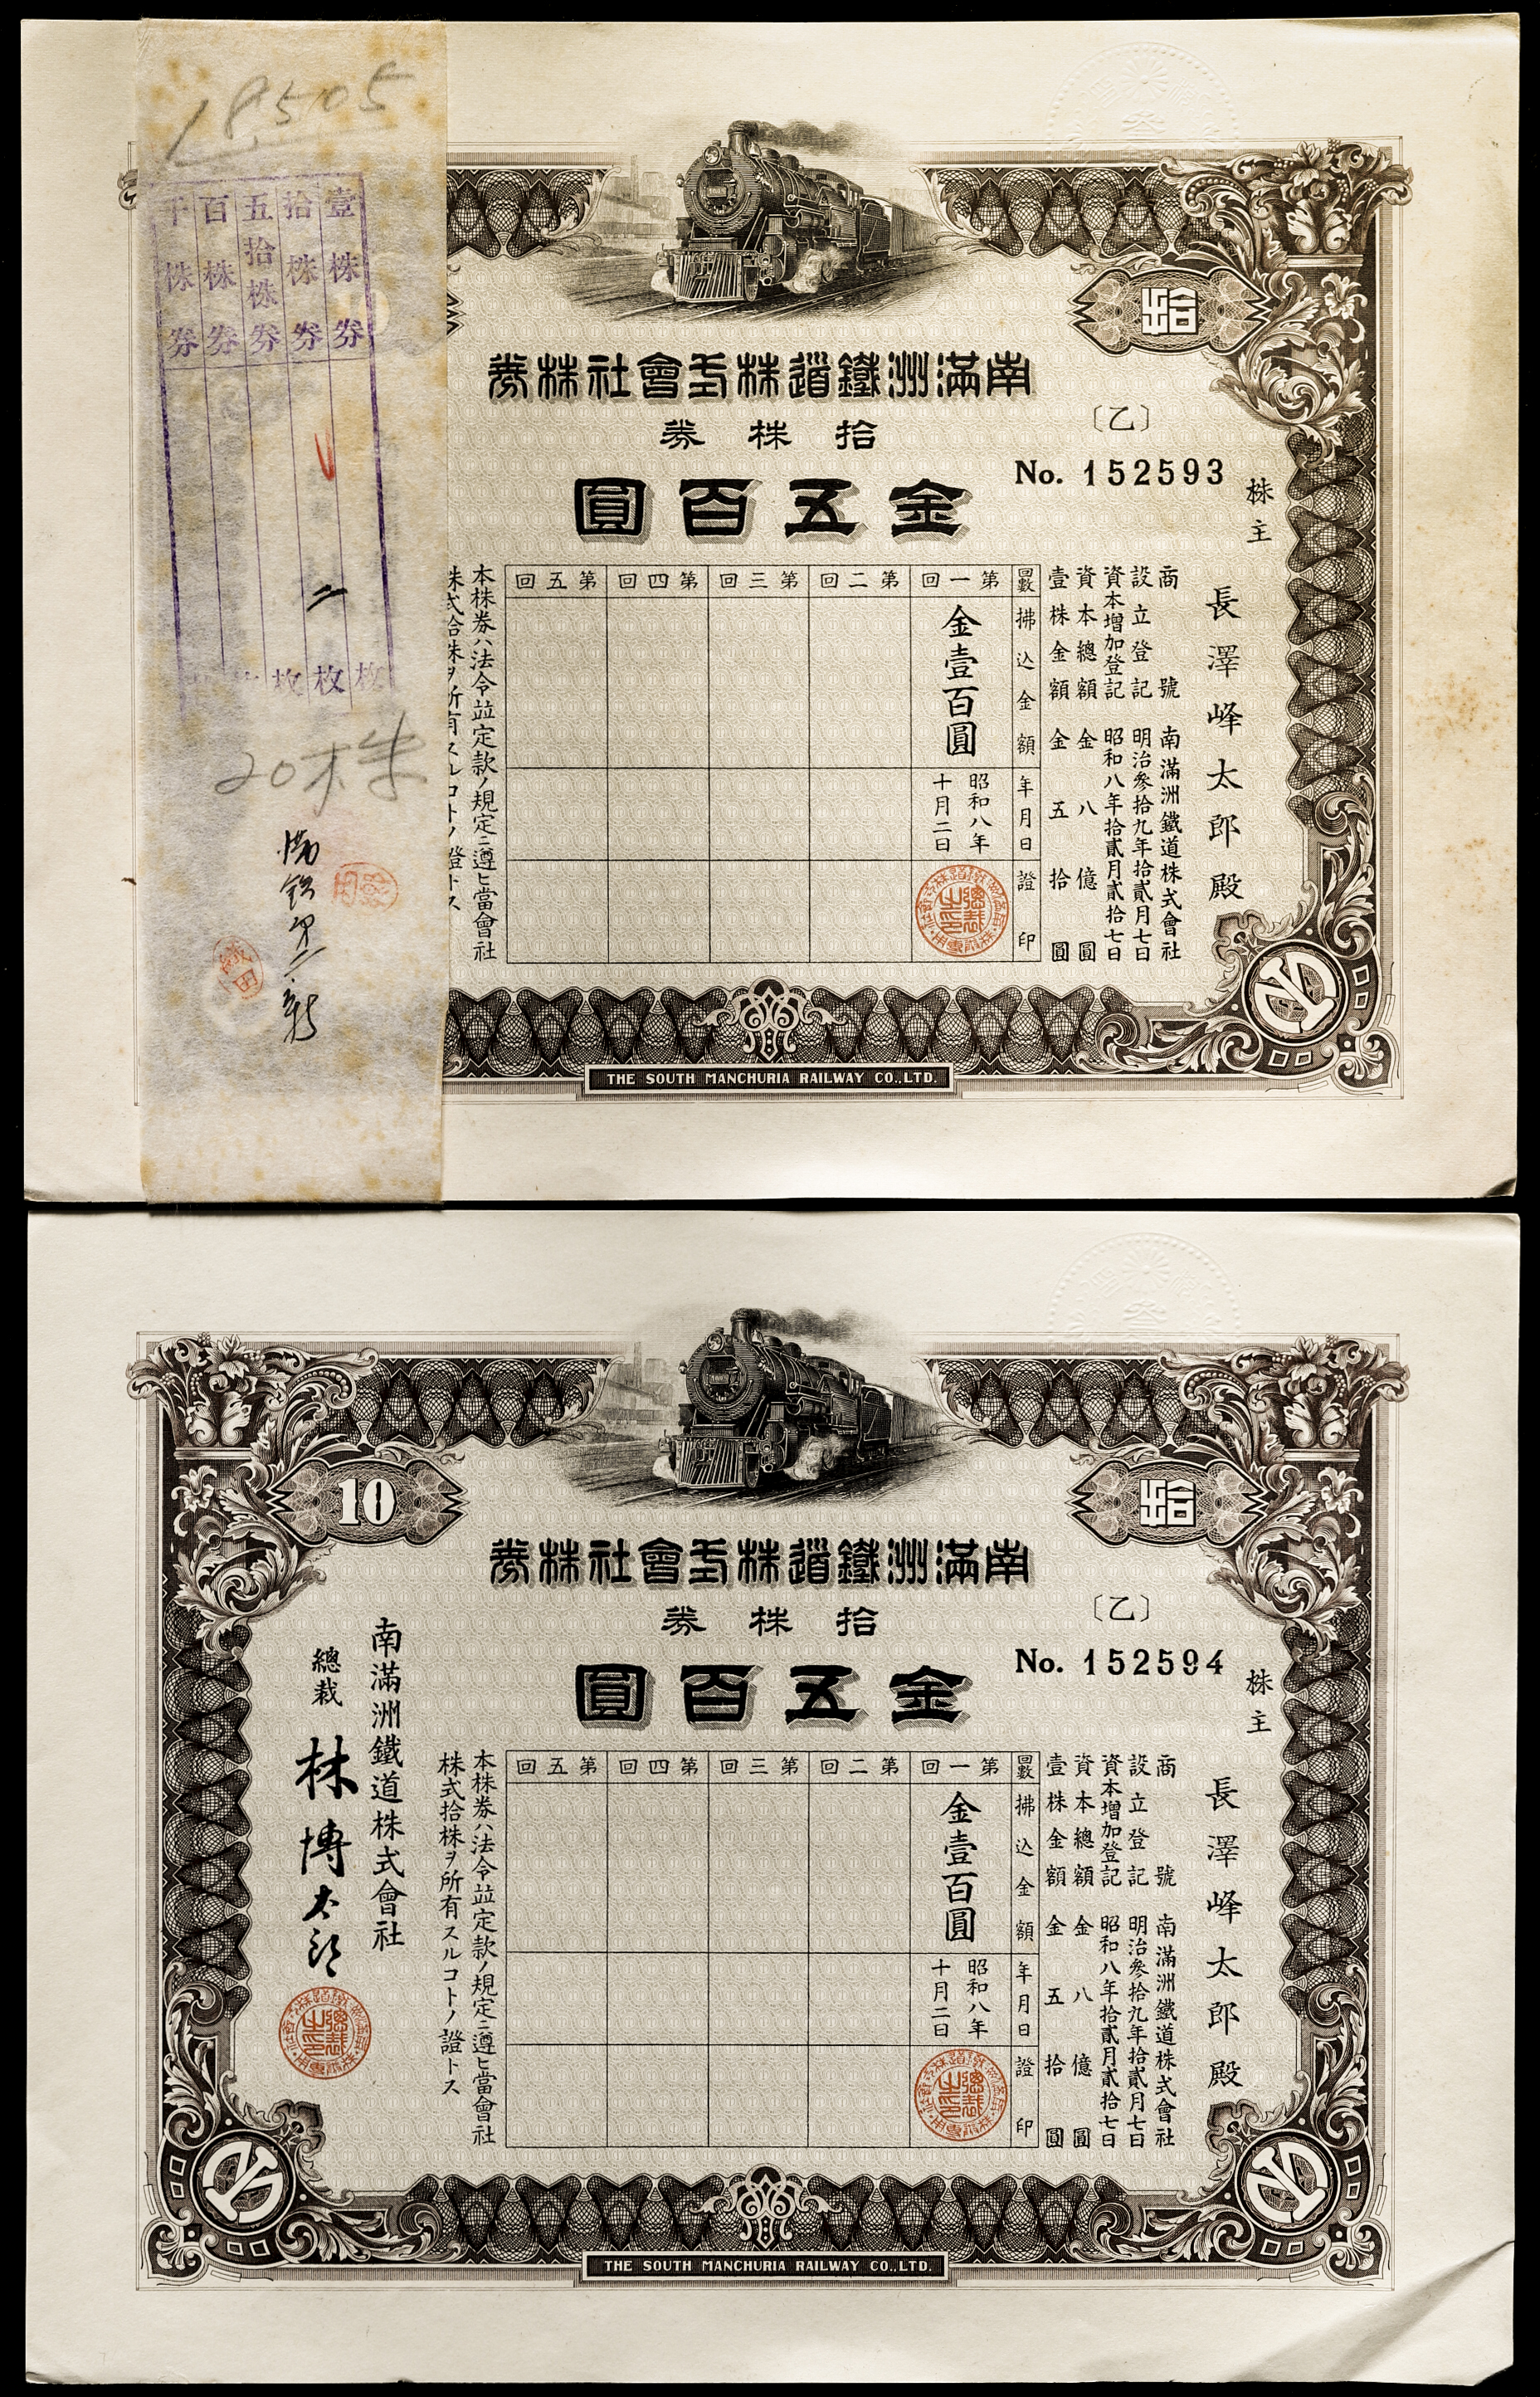 18505
壹株券
拾株券
五拾株券
百株券
千株券
二
枚
枚
枚
20株
拾
南滿洲鐵道株式會社株券
拾株券
〔乙〕
金五百圓
No. 152593
株主
長澤峰太郎殿
商號 南滿洲鐵道株式會社
設立登記 明治參拾九年拾貳月七日
資本增加登記 昭和八年拾貳月貳拾七日
資本總額 金八億圓
壹株金額 金五拾圓
回數 第一回 第二回 第三回 第四回 第五回
拂込金額 金壹百圓
年月日 昭和八年十月二日
證印
本株券ハ法令竝定款ノ規定ニ遵ヒ當會社
株式拾株ヲ所有スルコトノ證トス
THE SOUTH MANCHURIA RAILWAY CO.,LTD.
10
拾
南滿洲鐵道株式會社株券
拾株券
〔乙〕
金五百圓
No. 152594
株主
長澤峰太郎殿
商號 南滿洲鐵道株式會社
設立登記 明治參拾九年拾貳月七日
資本增加登記 昭和八年拾貳月貳拾七日
資本總額 金八億圓
壹株金額 金五拾圓
回數 第一回 第二回 第三回 第四回 第五回
拂込金額 金壹百圓
年月日 昭和八年十月二日
證印
本株券ハ法令竝定款ノ規定ニ遵ヒ當會社
株式拾株ヲ所有スルコトノ證トス
南滿洲鐵道株式會社
總裁 林博太郎
THE SOUTH MANCHURIA RAILWAY CO.,LTD.